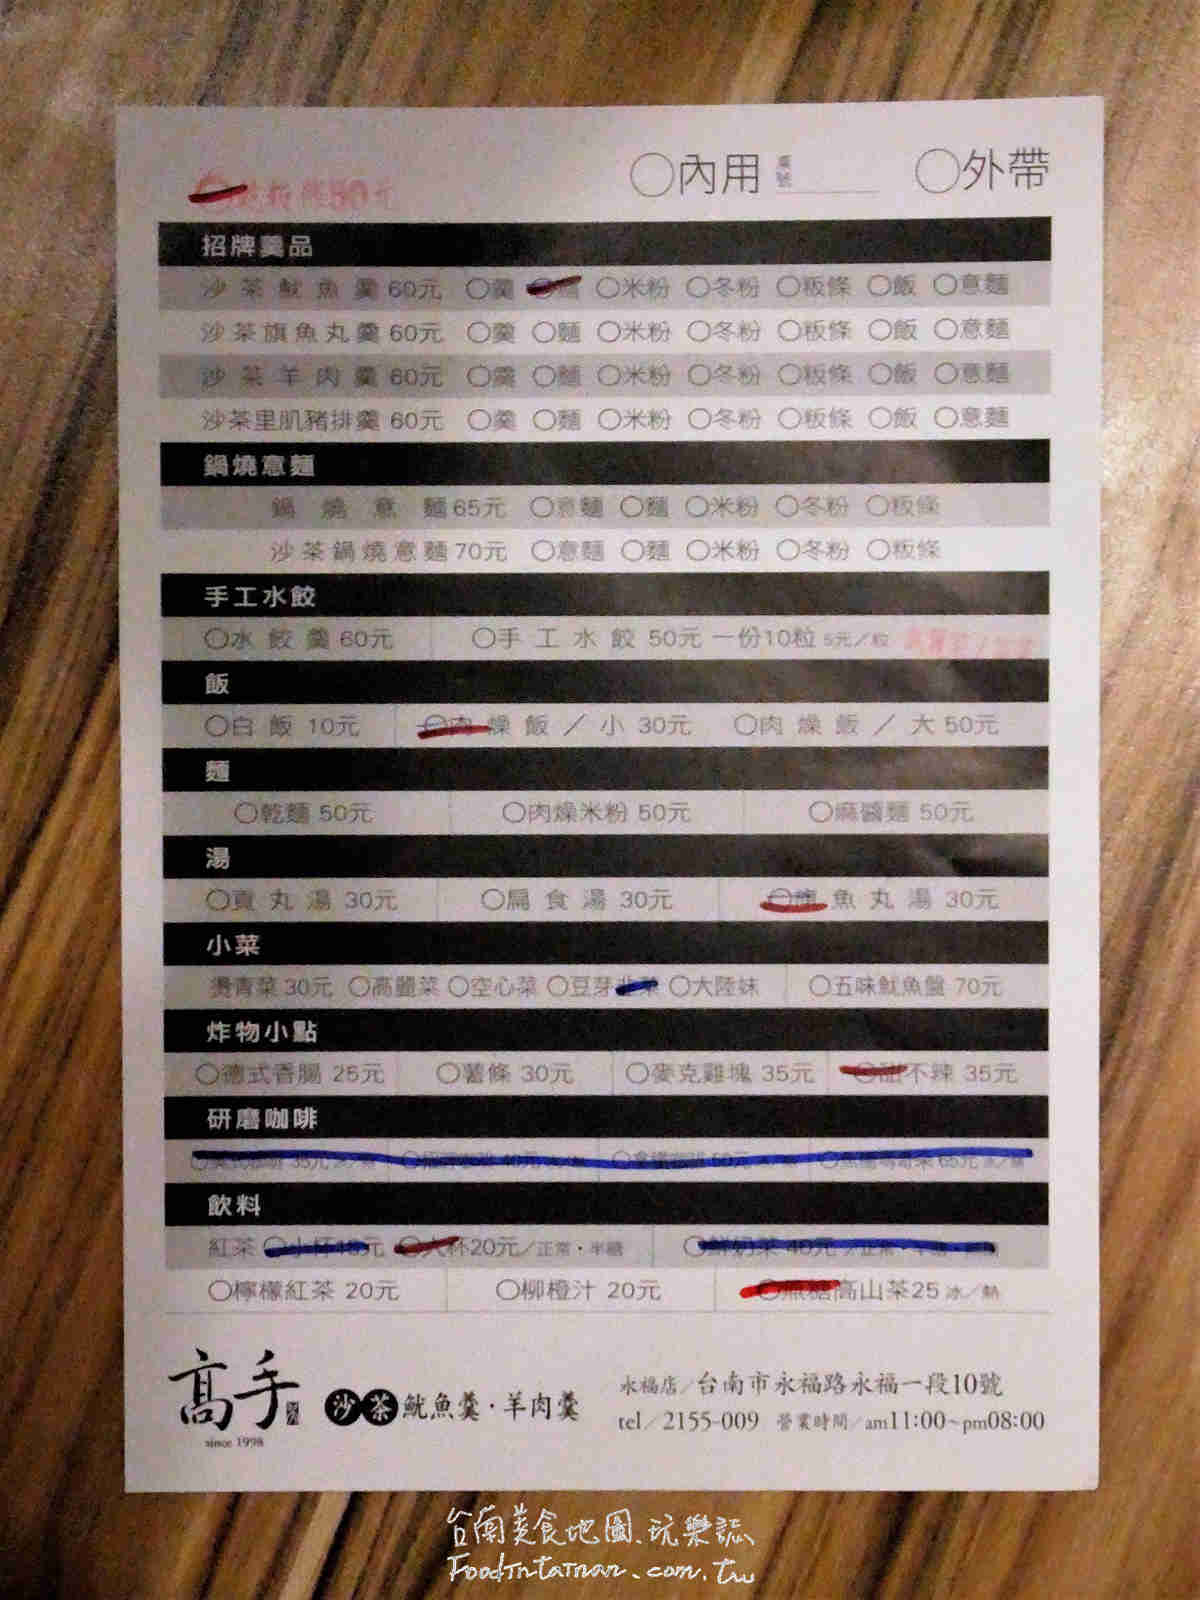 ○內用 桌號 ○外帶
50元
招牌羹品
沙茶魷魚羹60元 ○羹 ○麵 ○米粉 ○冬粉 ○粄條 ○飯 ○意麵
沙茶旗魚丸羹60元 ○羹 ○麵 ○米粉 ○冬粉 ○粄條 ○飯 ○意麵
沙茶羊肉羹60元 ○羹 ○麵 ○米粉 ○冬粉 ○粄條 ○飯 ○意麵
沙茶里肌豬排羹60元 ○羹 ○麵 ○米粉 ○冬粉 ○粄條 ○飯 ○意麵
鍋燒意麵
鍋燒意麵65元 ○意麵 ○麵 ○米粉 ○冬粉 ○粄條
沙茶鍋燒意麵70元 ○意麵 ○麵 ○米粉 ○冬粉 ○粄條
手工水餃
○水餃羹60元 ○手工水餃50元一份10粒 5元/粒
飯
○白飯10元 ○肉燥飯/小30元 ○肉燥飯/大50元
麵
○乾麵50元 ○肉燥米粉50元 ○麻醬麵50元
湯
○貢丸湯30元 ○扁食湯30元 ○旗魚丸湯30元
小菜
燙青菜30元 ○高麗菜 ○空心菜 ○豆芽韭菜 ○大陸妹 ○五味魷魚盤70元
炸物小點
○德式香腸25元 ○薯條30元 ○麥克雞塊35元 ○甜不辣35元
研磨咖啡
○美式咖啡35元 冰/熱 ○ 40元 冰/熱 ○拿鐵咖啡50元 ○焦糖瑪奇朵65元 冰/熱
飲料
紅茶 ○小杯15元 ○大杯20元/正常・半糖 ○鮮奶茶40元/正常・半糖
○檸檬紅茶20元 ○柳橙汁20元 ○無糖高山茶25 冰/熱
高手
since 1998
沙茶魷魚羹・羊肉羹
永福店/台南市永福路永福一段10號
tel/2155-009 營業時間/am11:00~pm08:00
台南美食地圖.玩樂誌
FoodInTainan.com.tw